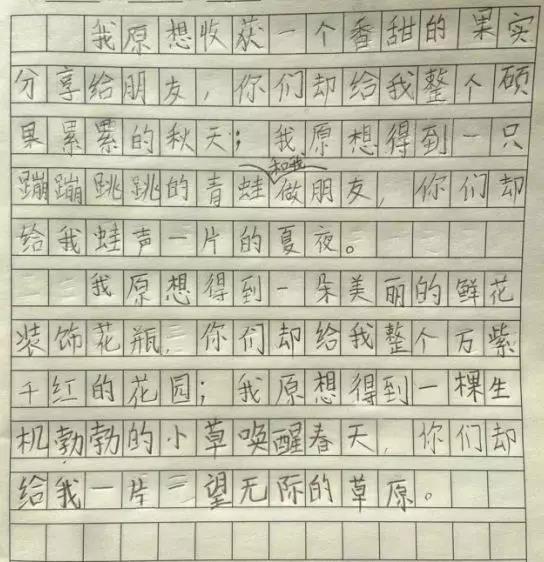 我原想收获一个香甜的果实
分享给朋友，你们却给我整个硕
果累累的秋天；我原想得到一只
蹦蹦跳跳的青蛙和我做朋友，你们却
给我蛙声一片的夏夜。
我原想得到一朵美丽的鲜花
装饰花瓶，你们却给我整个万紫
千红的花园；我原想得到一棵生
机勃勃的小草唤醒春天，你们却
给我一片一望无际的草原。